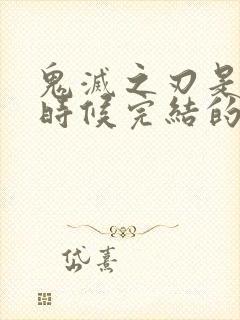 鬼滅之刃是
時候完結的
岱熹